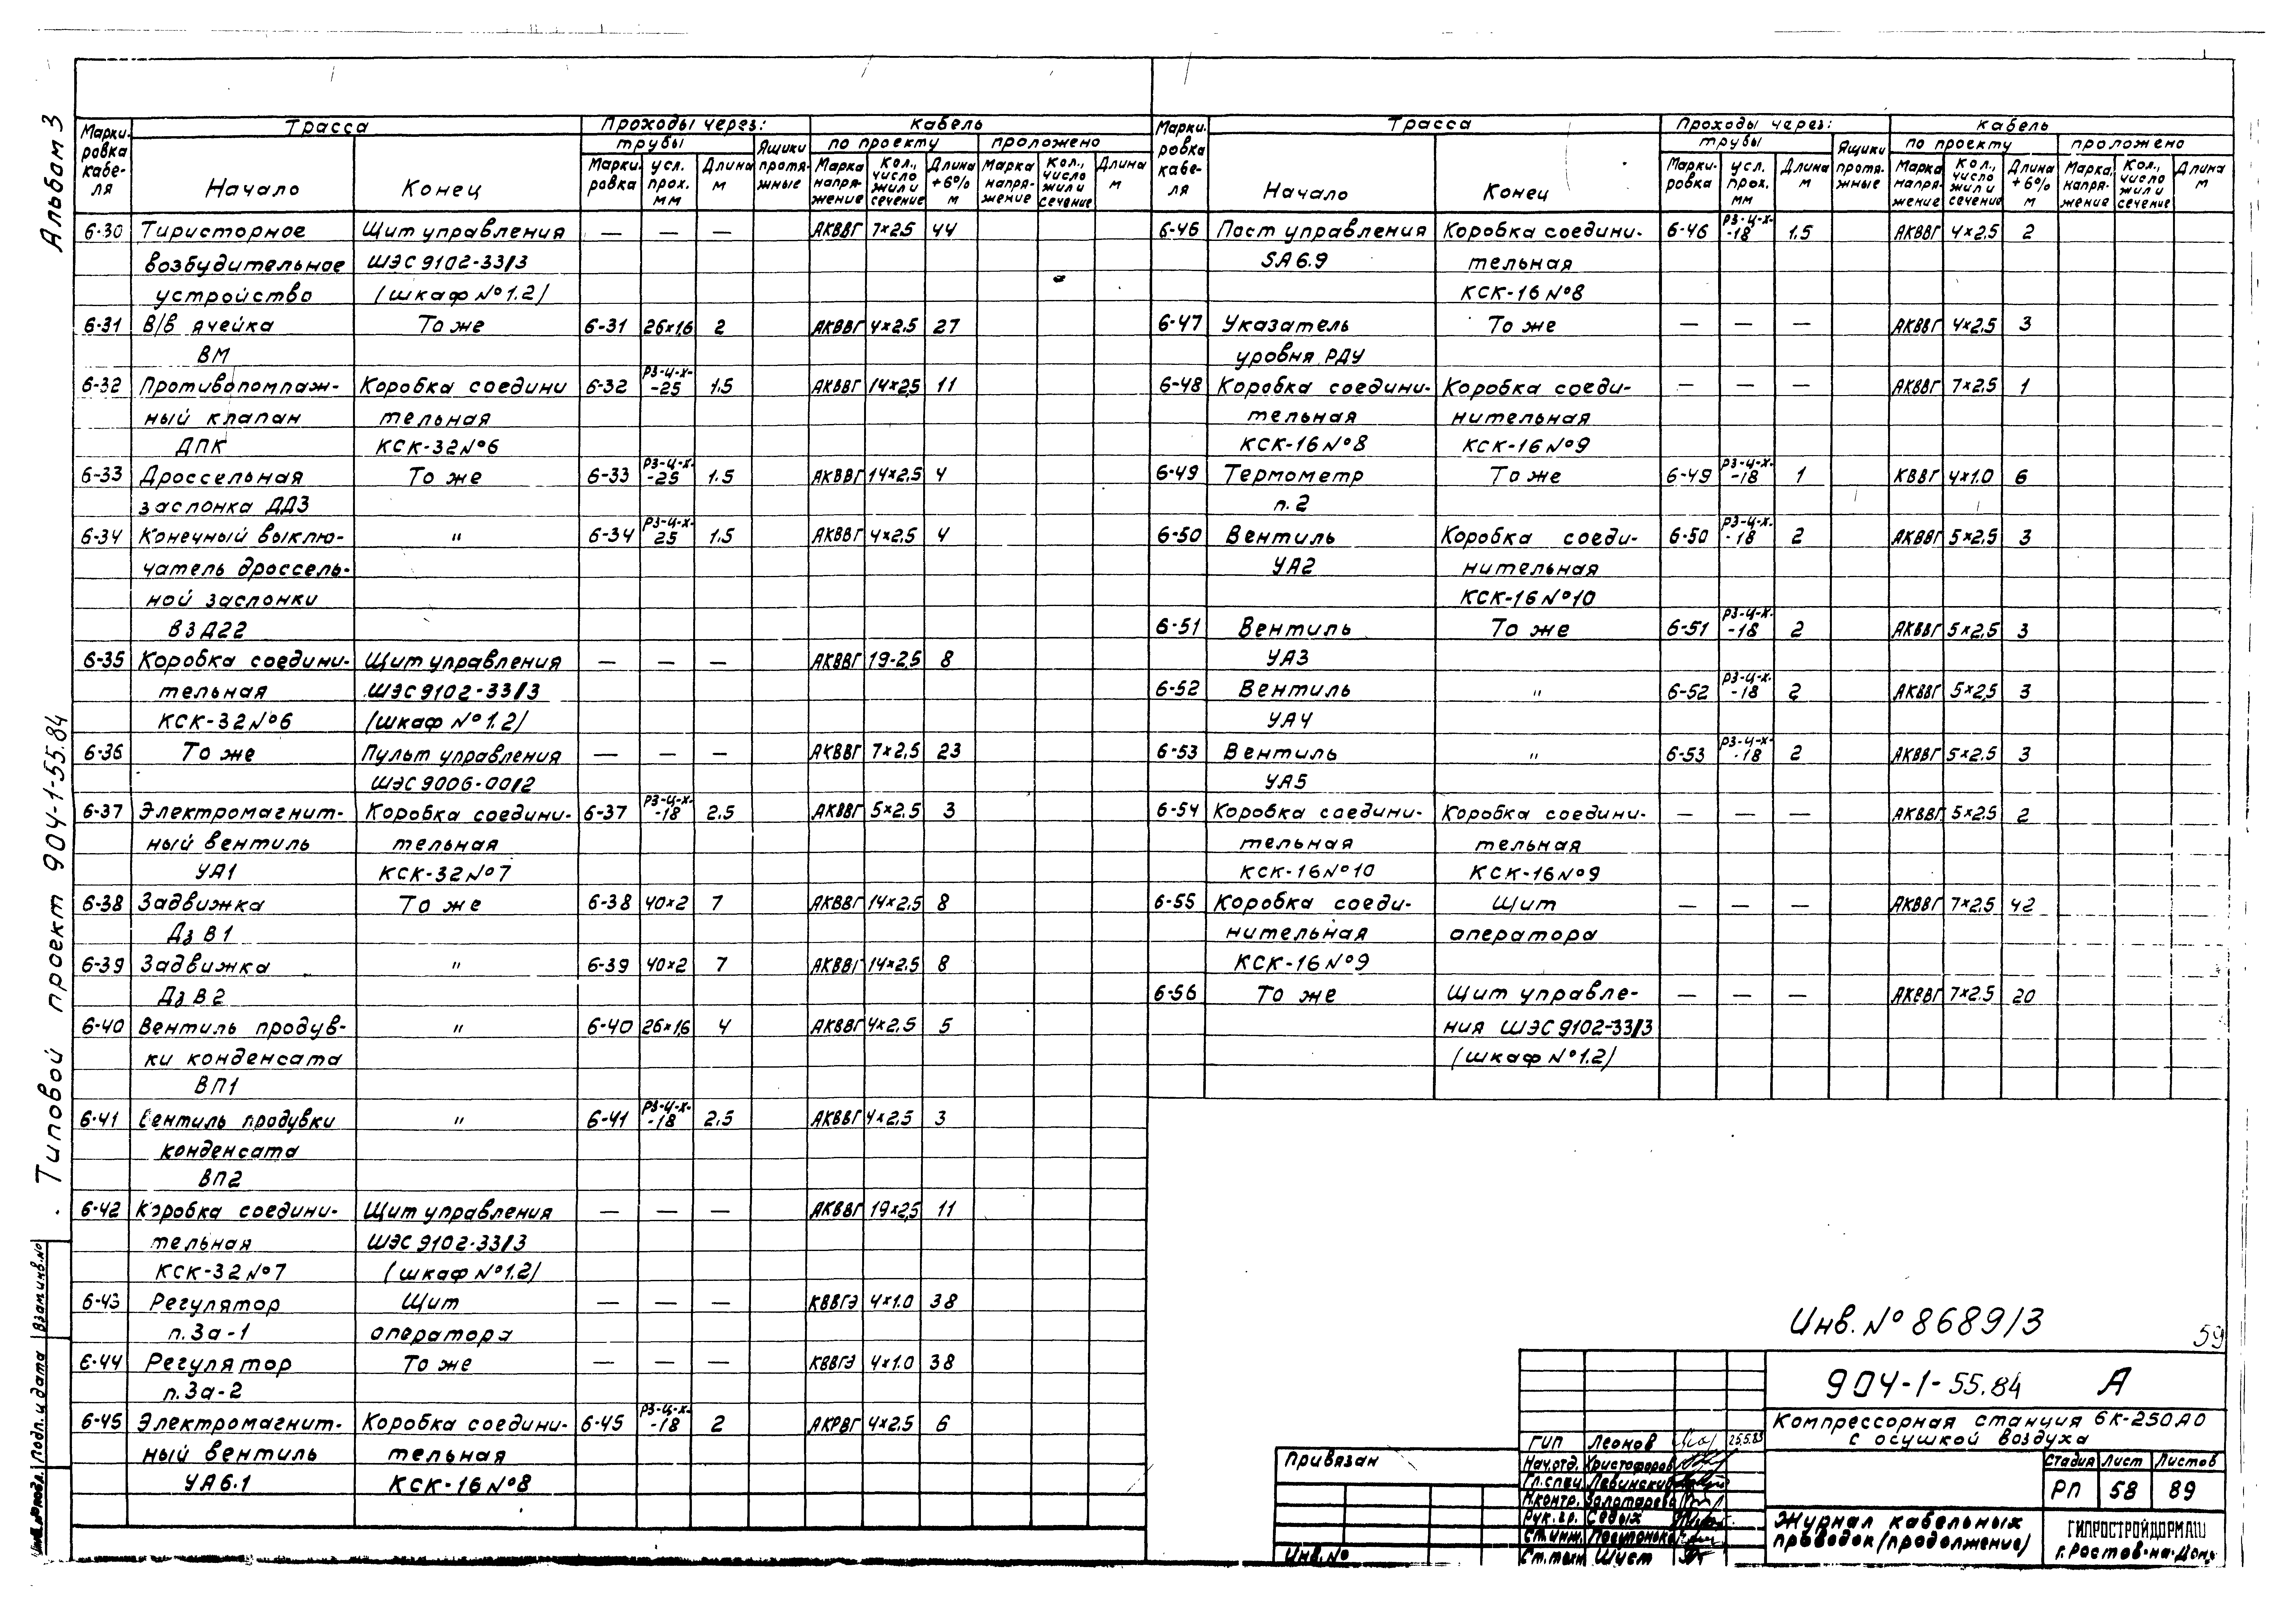 Альбом 3
Типовой проект 904-1-55.84
Взам.инв.№
Подп. и дата
Марки-ровка кабе-ля | Трасса | Проходы через: | кабель
трубы | Ящики протя-жные | по проекту | проложено
Начало | Конец | Марки-ровка | усл. прох. мм | Длина м | Марка напря-жение | Кол., число жил и сечение | Длина +6% м | Марка напря-жение | Кол., число жил и сечение | Длина м
6-30 Тиристорное Щит управления — — — АКВВГ 7×2.5 44
возбудительное ШЭС 9102-33/3
устройство (шкаф №1.2)
6-31 В/в ячейка То же 6-31 26×1,6 2 АКВВГ 4×2.5 27
ВМ
6-32 Противопомпаж- Коробка соедини 6-32 РЗ-Ц-Х--25 1.5 АКВВГ 14×2,5 11
ный клапан тельная
ДПК КСК-32№6
6-33 Дроссельная То же 6-33 РЗ-Ц-Х--25 1.5 АКВВГ 14×2,5 4
заслонка ДДЗ
6-34 Конечный выклю- " 6-34 РЗ-Ц-Х-25 1.5 АКВВГ 4×2,5 4
чатель дроссель-
ной заслонки
ВЗД22
6-35 Коробка соедини- Щит управления — — — АКВВГ 19-2,5 8
тельная ШЭС 9102-33/3
КСК-32№6 (шкаф №1.2)
6-36 То же Пульт управления — — — АКВВГ 7×2,5 23
ШЭС 9006-00/2
6-37 Электромагнит- Коробка соедини- 6-37 РЗ-Ц-Х--18 2.5 АКВВГ 5×2,5 3
ный вентиль тельная
УА1 КСК-32№7
6-38 Задвижка То же 6-38 40×2 7 АКВВГ 14×2.5 8
Дз В1
6-39 Задвижка " 6-39 40×2 7 АКВВГ 14×2.5 8
Дз В2
6-40 Вентиль продув- " 6-40 26×1,6 4 АКВВГ 4×2.5 5
ки конденсата
ВП1
6-41 Вентиль продувки " 6-41 РЗ-Ц-Х--18 2.5 АКВВГ 4×2.5 3
конденсата
ВП2
6-42 Коробка соедини- Щит управления — — — АКВВГ 19×2,5 11
тельная ШЭС 9102-33/3
КСК-32№7 (шкаф №1.2)
6-43 Регулятор Щит — — — КВВГЭ 4×1.0 38
п.3а-1 оператора
6-44 Регулятор То же — — — КВВГЭ 4×1.0 38
п.3а-2
6-45 Электромагнит- Коробка соедини- 6-45 РЗ-Ц-Х--18 2 АКРВГ 4×2.5 6
ный вентиль тельная
УА6.1 КСК-16№8
Марки-ровка кабе-ля | Трасса | Проходы через: | кабель
трубы | Ящики протя-жные | по проекту | проложено
Начало | Конец | Марки-ровка | усл. прох. мм | Длина м | Марка напря-жение | Кол., число жил и сечение | Длина +6% м | Марка, напря-жение | Кол., число жил и сечение | Длина м
6-46 Пост управления Коробка соедини- 6-46 РЗ-Ц-Х--18 1.5 АКВВГ 4×2,5 2
SA6.9 тельная
КСК-16№8
6-47 Указатель То же — — — АКВВГ 4×2.5 3
уровня РДУ
6-48 Коробка соедини- Коробка соеди- — — — АКВВГ 7×2.5 1
тельная нительная
КСК-16№8 КСК-16№9
6-49 Термометр То же 6-49 РЗ-Ц-Х--18 1 КВВГ 4×1.0 6
п.2
6-50 Вентиль Коробка соеди- 6-50 РЗ-Ц-Х--18 2 АКВВГ 5×2,5 3
УА2 нительная
КСК-16№10
6-51 Вентиль То же 6-51 РЗ-Ц-Х--18 2 АКВВГ 5×2,5 3
УА3
6-52 Вентиль " 6-52 РЗ-Ц-Х--18 2 АКВВГ 5×2,5 3
УА4
6-53 Вентиль " 6-53 РЗ-Ц-Х--18 2 АКВВГ 5×2.5 3
УА5
6-54 Коробка соедини- Коробка соедини- — — — АКВВГ 5×2.5 2
тельная тельная
КСК-16№10 КСК-16№9
6-55 Коробка соеди- Щит — — — АКВВГ 7×2,5 42
нительная оператора
КСК-16№9
6-56 То же Щит управле- — — — АКВВГ 7×2.5 20
ния ШЭС 9102-33/3
(шкаф №1.2)
Инв.№ 8689/3
59
904-1-55.84 А
Компрессорная станция 6К-250АО
с осушкой воздуха
ГИП Леонов 25.5.83
Нач.отд. Христофоров
Гл.спец. Левинский
Н.контр. Золотарева
Рук.гр. Седых
Ст.инж.
Ст.техн. Шуст
Стадия Лист Листов
РП 58 89
Журнал кабельных
проводок (продолжение)
ГИПРОСТРОЙДОРМАШ
г.Ростов-на-Дону
Привязан
Инв.№